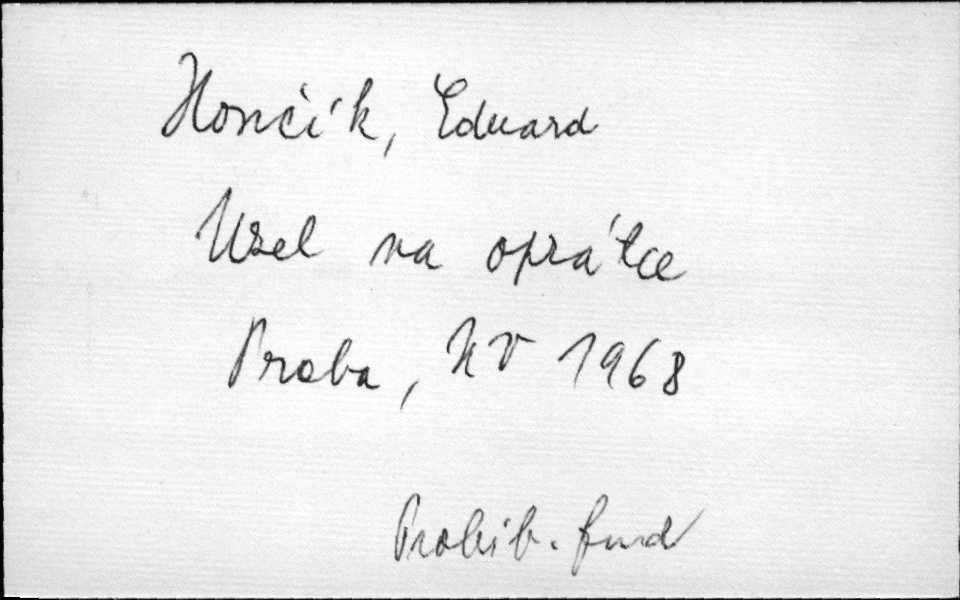 Hončík, Eduard
Uzel na oprátce
Praha, NV 1968
Prohib. fund